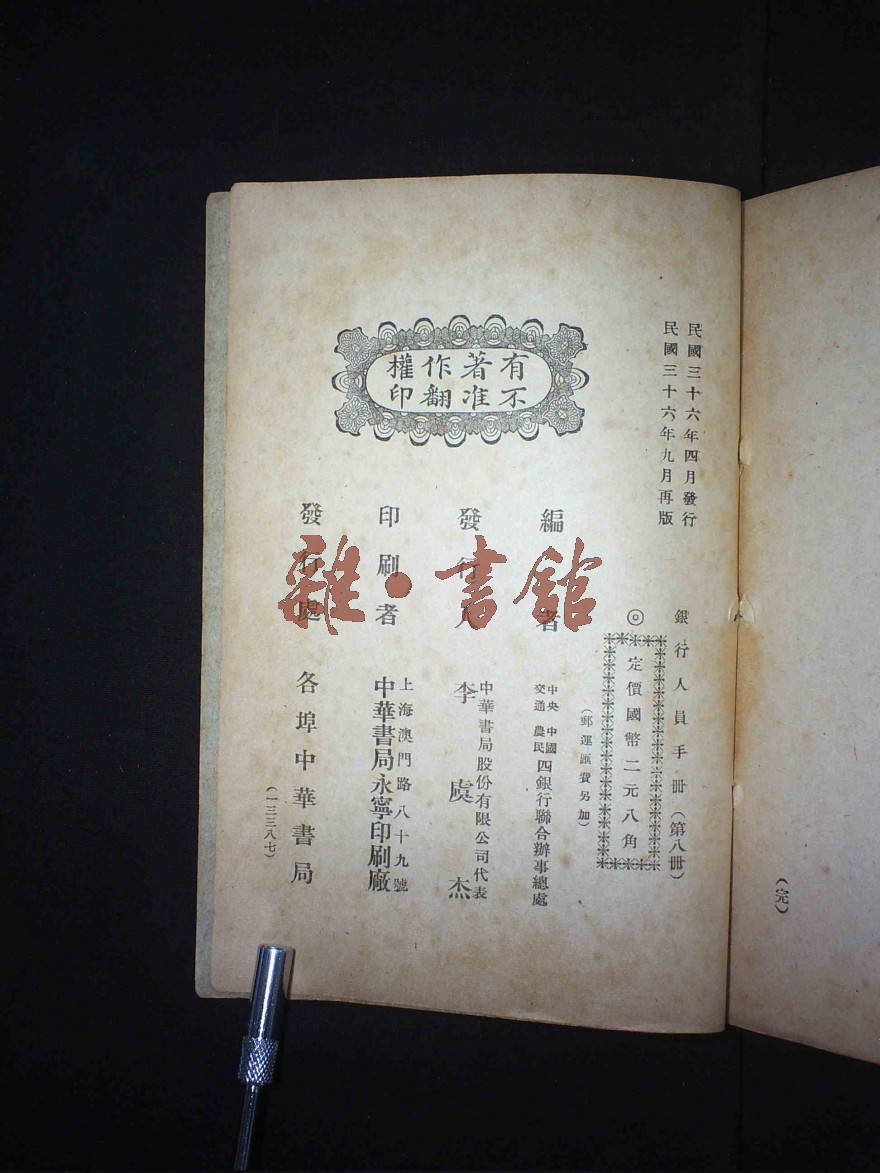 （完）
民國三十六年四月發行
民國三十六年九月再版
銀行人員手冊（第八冊）
◎定價國幣二元八角
（郵運匯費另加）
編者
中央 中國
交通 農民
四銀行聯合辦事總處
發行人
中華書局股份有限公司代表
李虞杰
印刷者
上海澳門路八十九號
中華書局永寧印刷廠
發行處
各埠中華書局
（一三三八七）
有著作權
不准翻印
雜·書館